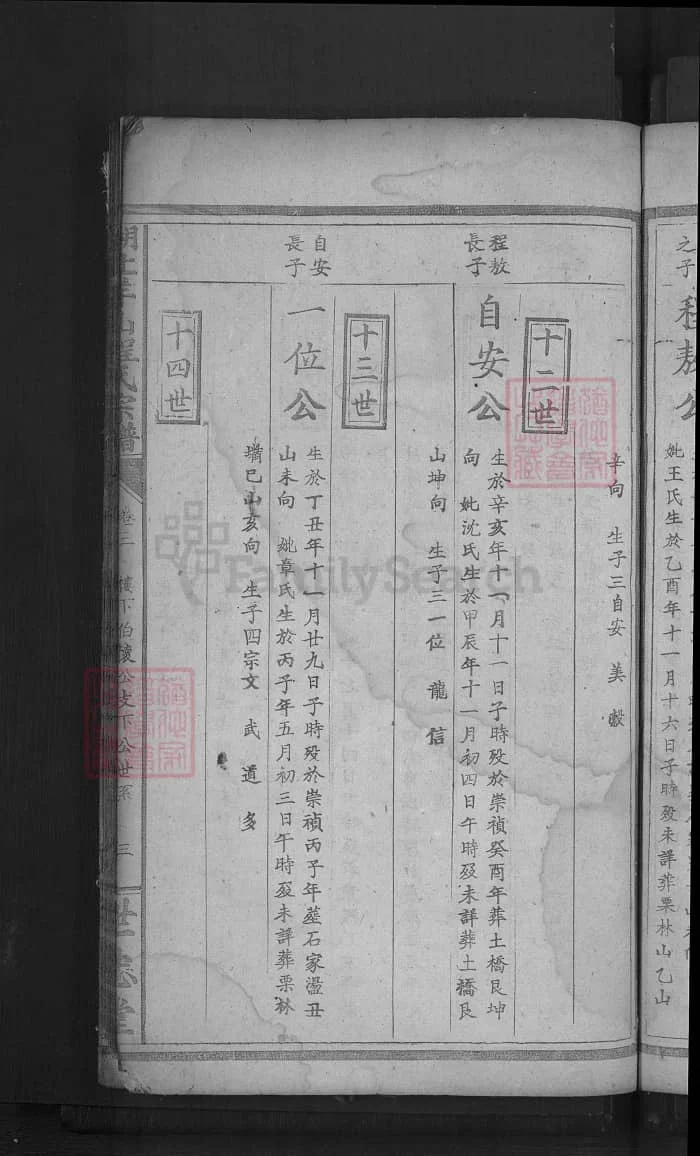 之子
程敖公
妣王氏生於乙酉年十一月十六日子時殁未詳葬栗林山乙山
辛向 生子三自安 美 縠
十二世
程敖長子
自安公
生於辛亥年十一月十一日子時殁於崇禎癸酉年葬土橋艮坤
向 妣沈氏生於甲辰年十一月初四日午時殁未詳葬土橋艮
山坤向 生子三一位 龍 信
十三世
自安長子
一位公
生於丁丑年十一月廿九日子時殁於崇禎丙子年塟石家塭丑
山未向 妣章氏生於丙子年五月初三日午時殁未詳葬栗林
嘴巳山亥向 生子四宗文 武 道 多
十四世
程氏宗譜
卷三 樓下伯懷公支下公世系 三
FamilySearch